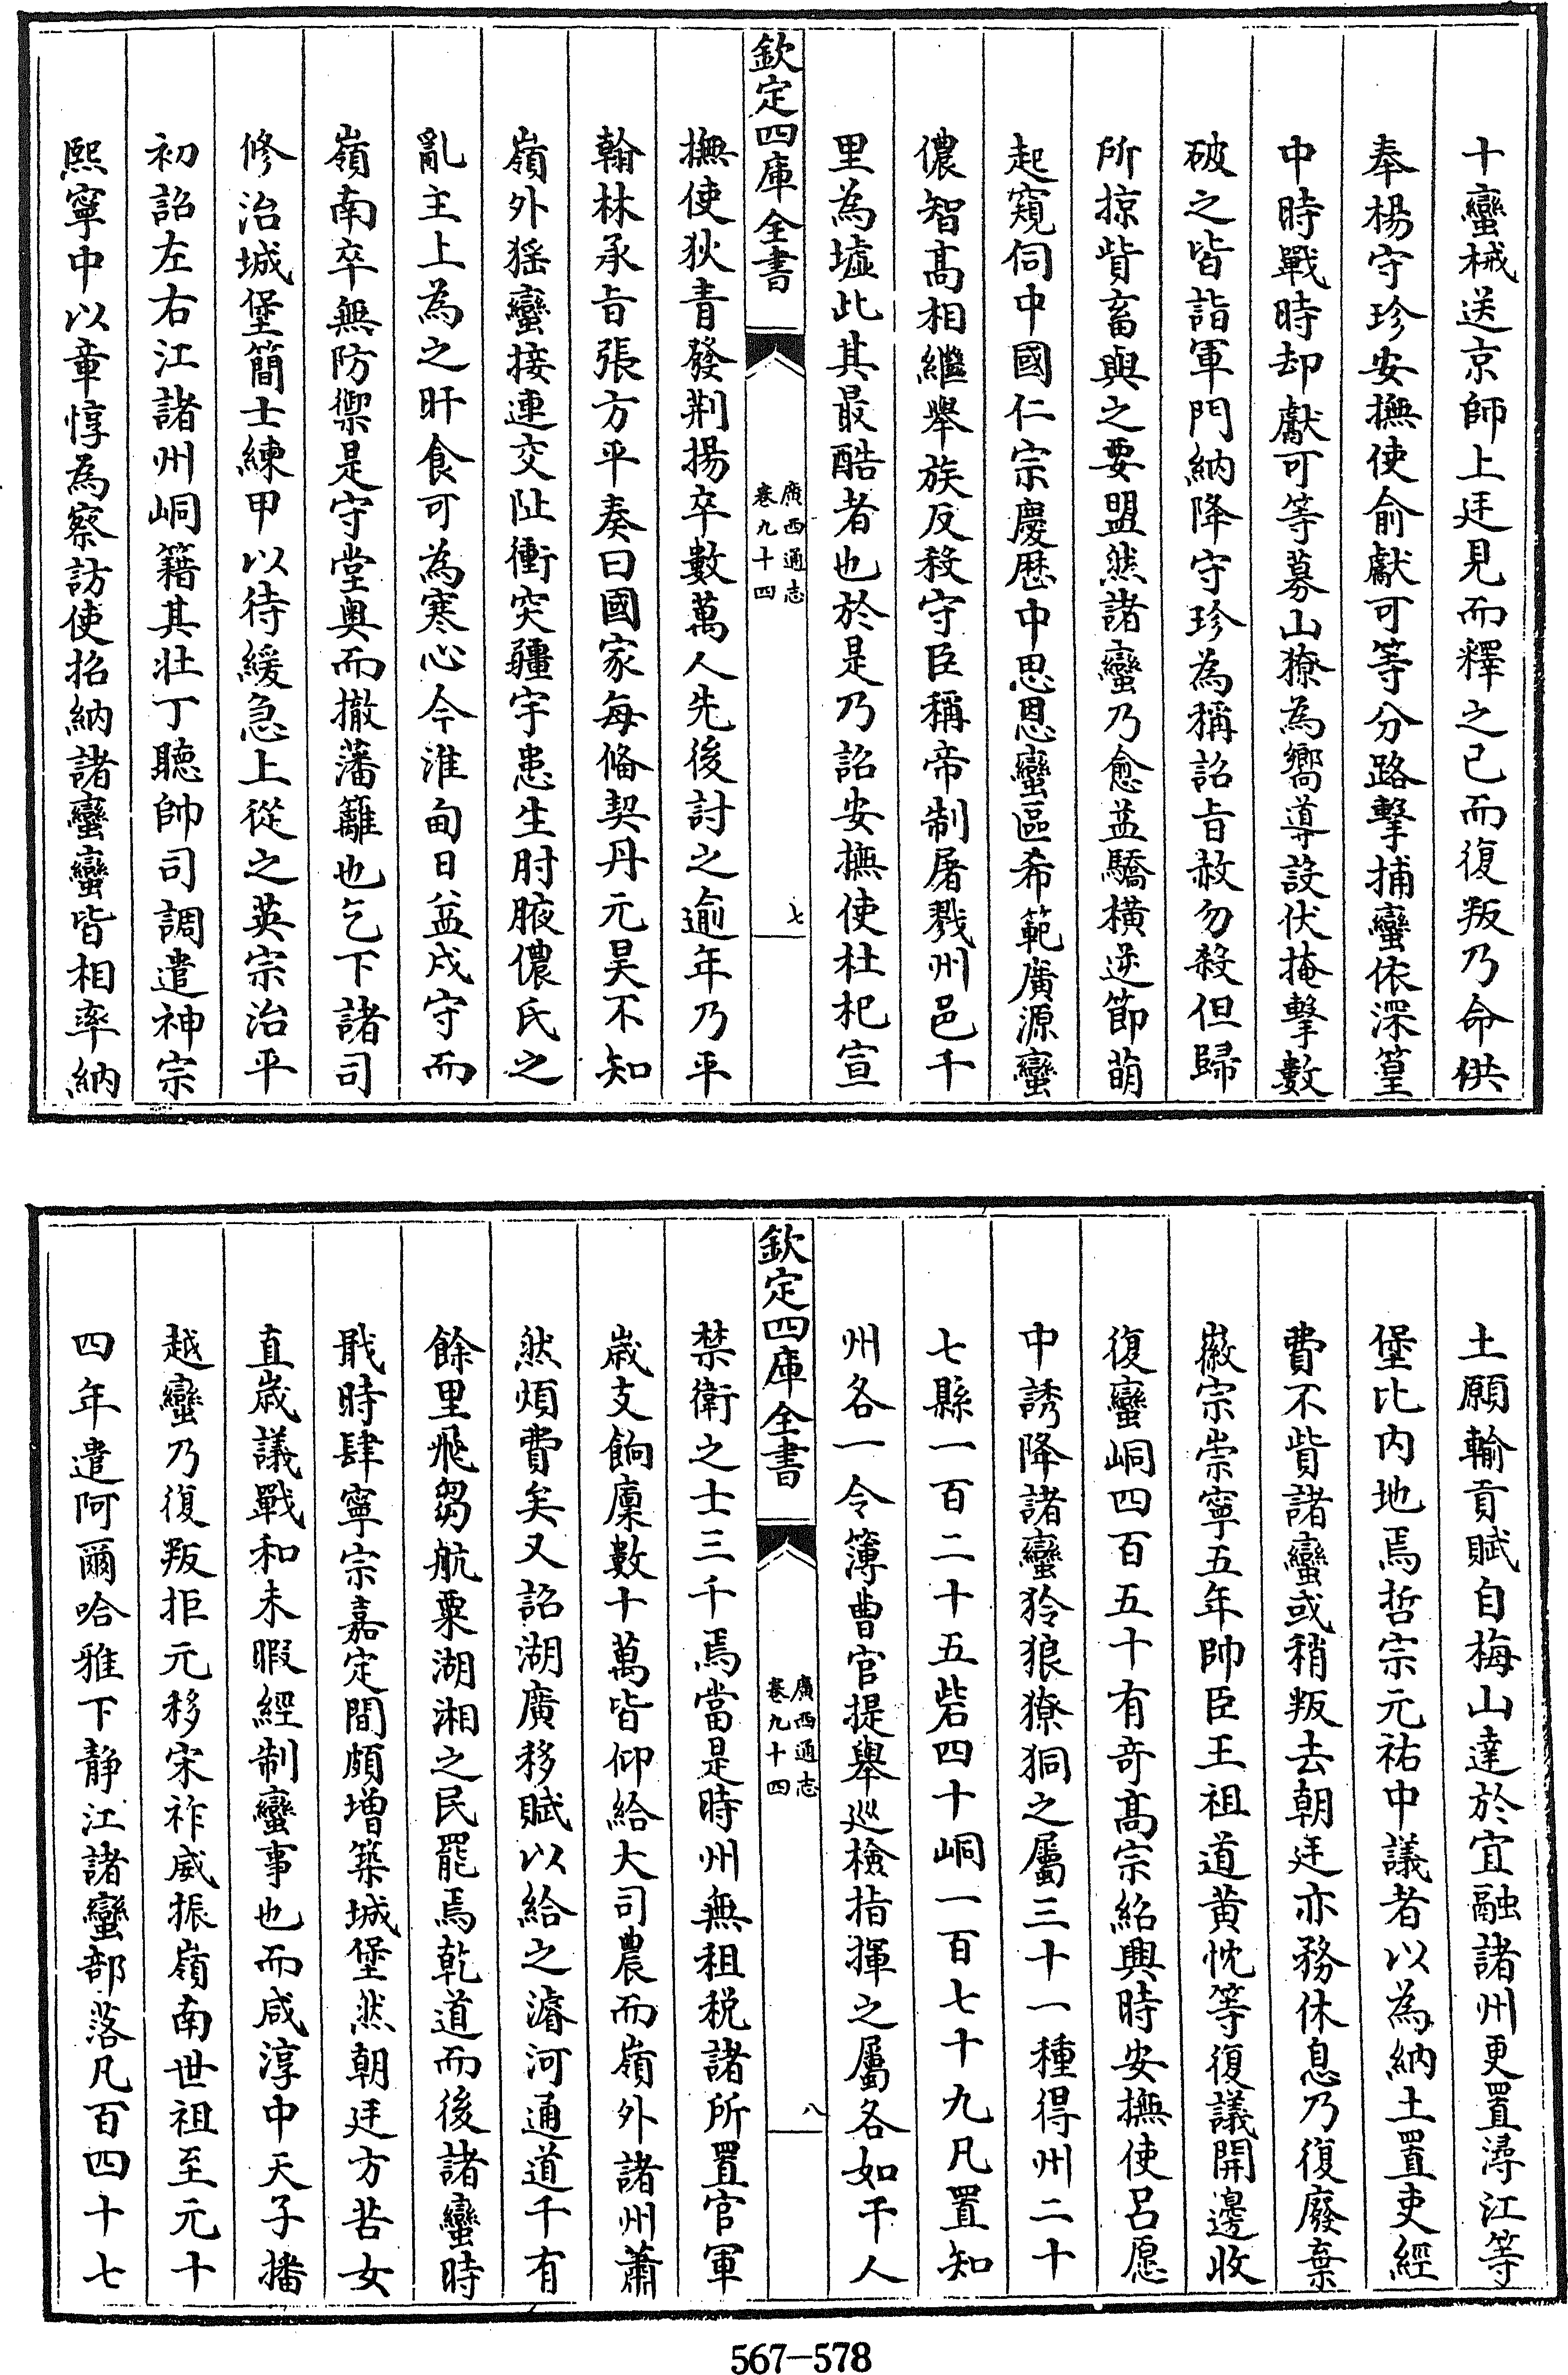 十蠻械送京師上廷見而釋之已而復叛乃命供
奉楊守珍安撫使俞獻可等分路擊捕蠻依深篁
中時戰時却獻可等募山獠為嚮導設伏掩擊數
破之皆詣軍門納降守珍為稱詔旨赦勿殺但歸
所掠貲畜與之要盟然諸蠻乃愈益驕橫逆節萌
起窺伺中國仁宗慶歷中思恩蠻區希範廣源蠻
儂智高相繼舉族反殺守臣稱帝制屠戮州邑千
里為墟此其最酷者也於是乃詔安撫使杜杞宣
欽定四庫全書
廣西通志
卷九十四
七
撫使狄青發荆揚卒數萬人先後討之逾年乃平
翰林承旨張方平奏曰國家每備契丹元昊不知
嶺外猺蠻接連交阯衝突疆宇患生肘腋儂氏之
亂主上為之旰食可為寒心今淮甸日益戍守而
嶺南卒無防禦是守堂奥而撤藩籬也乞下諸司
修治城堡簡士練甲以待緩急上從之英宗治平
初詔左右江諸州峒籍其壯丁聽帥司調遣神宗
熙寧中以章惇為察訪使招納諸蠻蠻皆相率納
土願輸貢賦自梅山達於宜融諸州更置潯江等
堡比内地焉哲宗元祐中議者以為納土置吏經
費不貲諸蠻或稍叛去朝廷亦務休息乃復廢棄
徽宗崇寧五年帥臣王祖道黄忱等復議開邊收
復蠻峒四百五十有奇高宗紹興時安撫使吕愿
中誘降諸蠻狑狼獠狪之屬三十一種得州二十
七縣一百二十五砦四十峒一百七十九凡置知
州各一令簿曹官提舉巡檢指揮之屬各如干人
欽定四庫全書
廣西通志
卷九十四
八
禁衛之士三千焉當是時州無租税諸所置官軍
歲支餉廩數十萬皆仰給大司農而嶺外諸州蕭
然煩費矣又詔湖廣移賦以給之濬河通道千有
餘里飛芻航粟湖湘之民罷焉乾道而後諸蠻時
戢時肆寧宗嘉定間頗增築城堡然朝廷方苦女
直歲議戰和未暇經制蠻事也而咸淳中天子播
越蠻乃復叛拒元移宋祚威振嶺南世祖至元十
四年遣阿爾哈雅下静江諸蠻部落凡百四十七
567—578